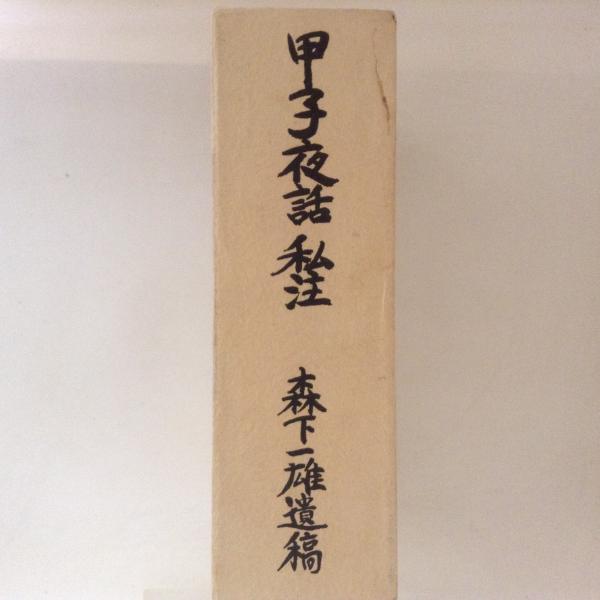 甲子夜話 私注
森下一雄遺稿